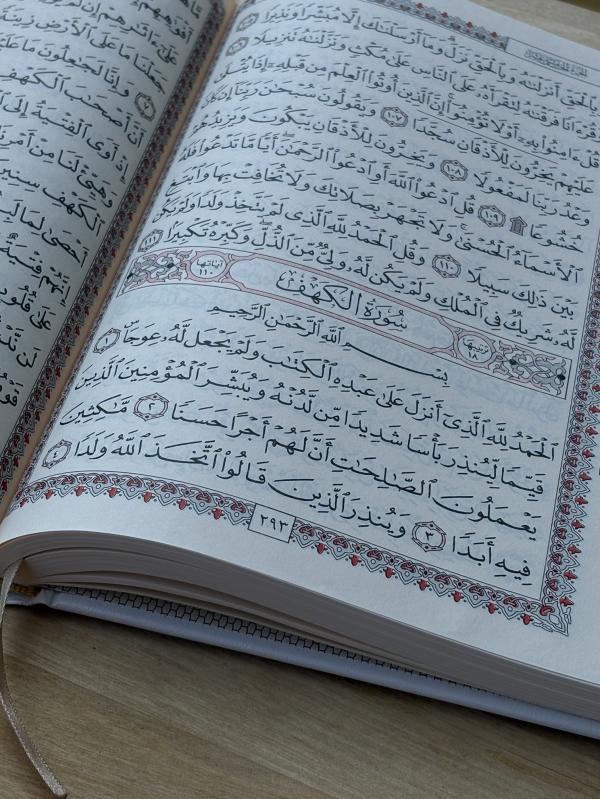 وَبِٱلْحَقِّ أَنزَلْنَٰهُ وَبِٱلْحَقِّ نَزَلَ ۗ وَمَآ أَرْسَلْنَٰكَ إِلَّا مُبَشِّرًا وَنَذِيرًا
وَقُرْءَانًا فَرَقْنَٰهُ لِتَقْرَأَهُۥ عَلَى ٱلنَّاسِ عَلَىٰ مُكْثٍ وَنَزَّلْنَٰهُ تَنزِيلًا
قُلْ ءَامِنُوا۟ بِهِۦٓ أَوْ لَا تُؤْمِنُوٓا۟ ۚ إِنَّ ٱلَّذِينَ أُوتُوا۟ ٱلْعِلْمَ مِن قَبْلِهِۦٓ إِذَا يُتْلَىٰ
عَلَيْهِمْ يَخِرُّونَ لِلْأَذْقَانِ سُجَّدًا ١٠٧ وَيَقُولُونَ سُبْحَٰنَ رَبِّنَآ إِن كَانَ
وَعْدُ رَبِّنَا لَمَفْعُولًا ١٠٨ وَيَخِرُّونَ لِلْأَذْقَانِ يَبْكُونَ وَيَزِيدُهُمْ
خُشُوعًا ۩ ١٠٩ قُلِ ٱدْعُوا۟ ٱللَّهَ أَوِ ٱدْعُوا۟ ٱلرَّحْمَٰنَ ۖ أَيًّا مَّا تَدْعُوا۟ فَلَهُ
ٱلْأَسْمَآءُ ٱلْحُسْنَىٰ ۚ وَلَا تَجْهَرْ بِصَلَاتِكَ وَلَا تُخَافِتْ بِهَا وَٱبْتَغِ
بَيْنَ ذَٰلِكَ سَبِيلًا ١١٠ وَقُلِ ٱلْحَمْدُ لِلَّهِ ٱلَّذِى لَمْ يَتَّخِذْ وَلَدًا وَلَمْ يَكُن
لَّهُۥ شَرِيكٌ فِى ٱلْمُلْكِ وَلَمْ يَكُن لَّهُۥ وَلِىٌّ مِّنَ ٱلذُّلِّ ۖ وَكَبِّرْهُ تَكْبِيرًۢا ١١١
ترتيبها ١٨ سُورَةُ الكَهْفِ آياتها ١١٠
بِسْمِ ٱللَّهِ ٱلرَّحْمَٰنِ ٱلرَّحِيمِ
ٱلْحَمْدُ لِلَّهِ ٱلَّذِىٓ أَنزَلَ عَلَىٰ عَبْدِهِ ٱلْكِتَٰبَ وَلَمْ يَجْعَل لَّهُۥ عِوَجَا ۜ ١
قَيِّمًا لِّيُنذِرَ بَأْسًا شَدِيدًا مِّن لَّدُنْهُ وَيُبَشِّرَ ٱلْمُؤْمِنِينَ ٱلَّذِينَ
يَعْمَلُونَ ٱلصَّٰلِحَٰتِ أَنَّ لَهُمْ أَجْرًا حَسَنًا ٢ مَّٰكِثِينَ
فِيهِ أَبَدًا ٣ وَيُنذِرَ ٱلَّذِينَ قَالُوا۟ ٱتَّخَذَ ٱللَّهُ وَلَدًا ٤
٢٩٣
عَلَىٰٓ ءَاثَٰرِهِمْ إِن لَّمْ
جَعَلْنَا مَا عَلَى ٱلْأَرْضِ
وَإِنَّا لَجَٰعِلُونَ مَا
أَنَّ أَصْحَٰبَ ٱلْكَهْفِ
إِذْ أَوَى ٱلْفِتْيَةُ إِلَى
وَهَيِّئْ لَنَا مِنْ
ٱلْكَهْفِ سِنِينَ
أَحْصَىٰ لِمَا
إِنَّهُمْ فِتْيَةٌ
عَلَىٰ
لَن